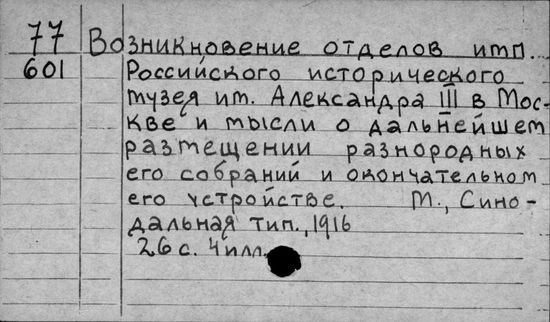 77 Возникновение отделов имп.
601 Российского исторического
музея им. Александра III в Мос-
кве и мысли о дальнейшем
размещении разнородных
его собраний и окончательном
его устройстве. М., Сино-
дальная тип., 1916
26 с. 4 илл.